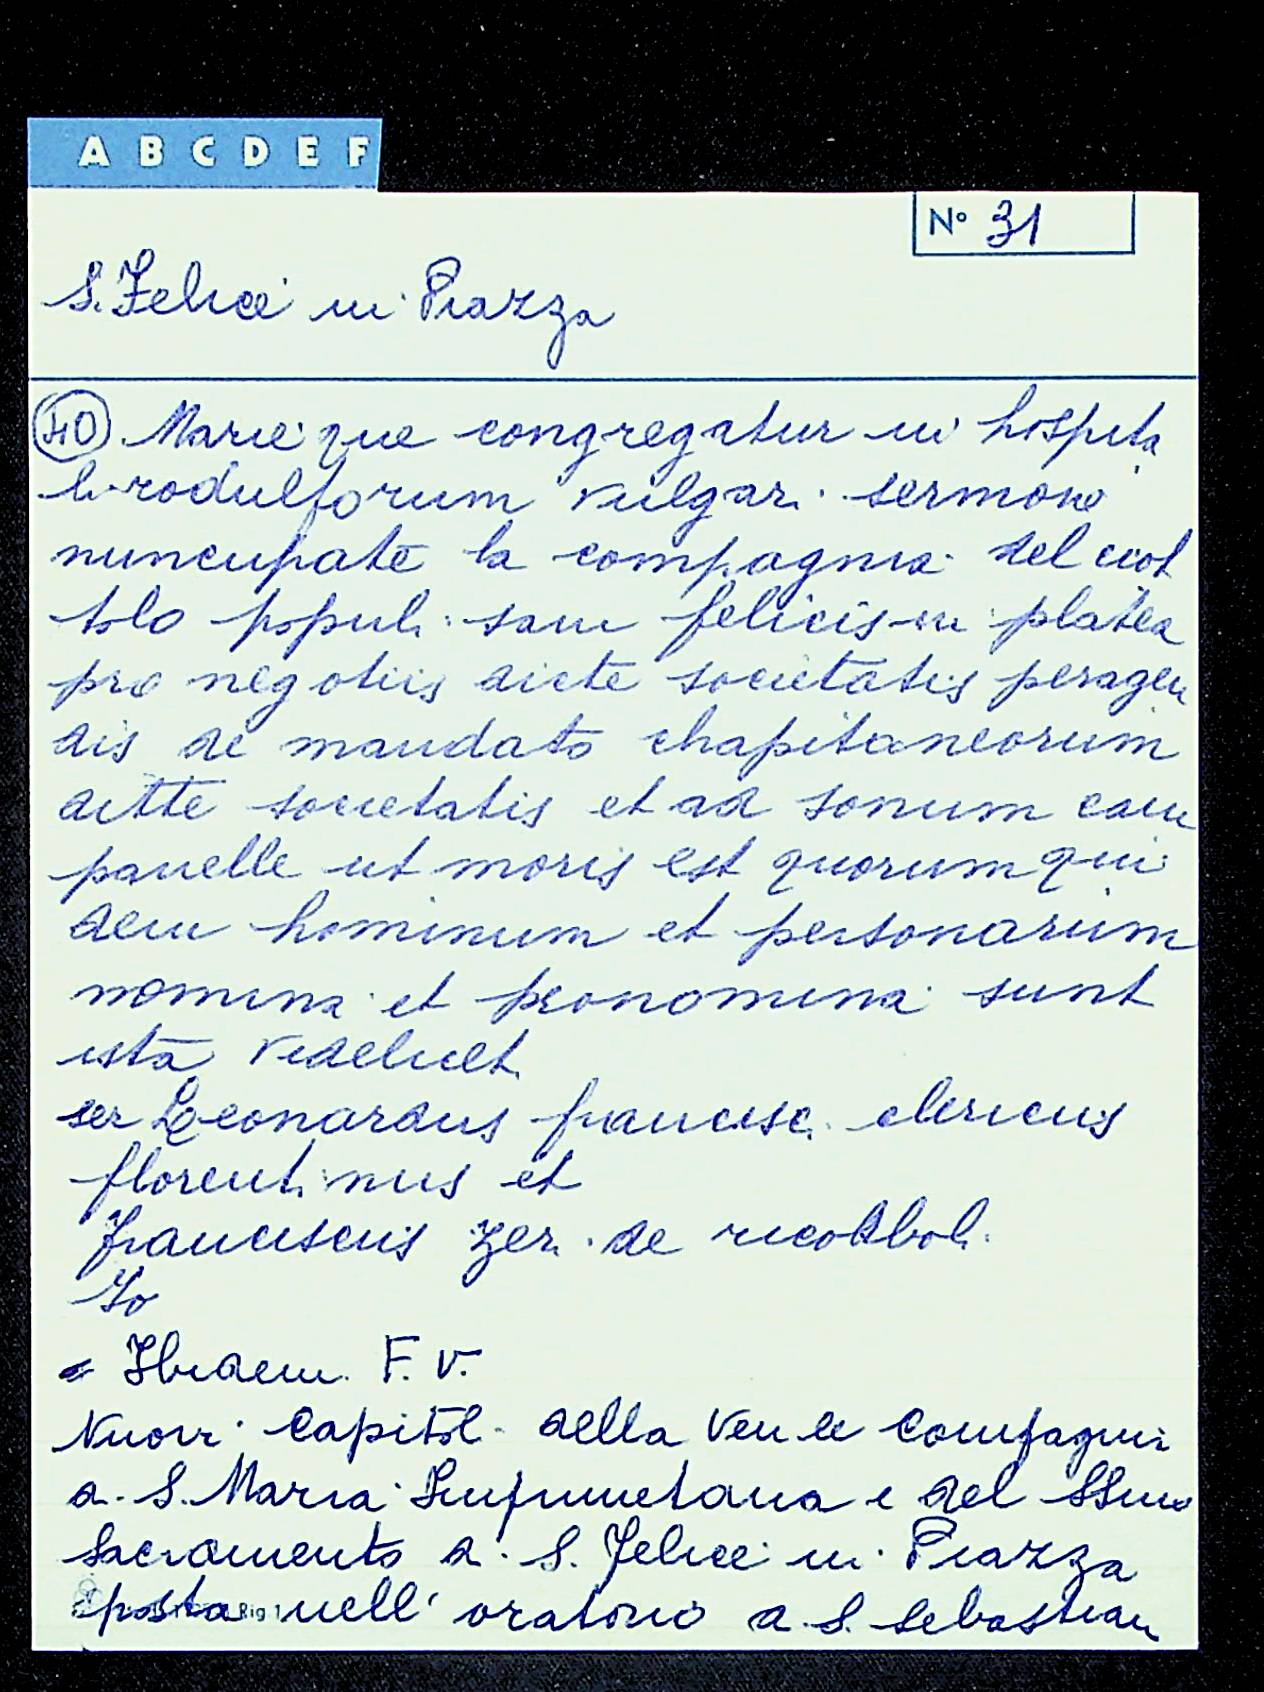 A B C D E F
Nº 31
S. Felice in Piazza
40 Marie que congregatur in hospita
li rodulforum vulgari sermone
nuncupate la compagnia del ciot
tolo populi sani felicis in platea
pro negotiis dicte societatis peragen
dis de mandato chapitaneorum
ditte societatis et ad sonum cam
panelle ut moris est quorum qui
dem hominum et personarum
nomina et pronomina sunt
ista videlicet
ser Leonardus francisci clericus
florentinus et
franciscus zeri de
Io
Ibidem F. V.
Nuovi Capitoli della Ven le Compagnia
di S. Maria Imprunetana e del SSmo
Sacramento di S. Felice in Piazza
posta nell' oratorio di S. Sebastian
Rig 1